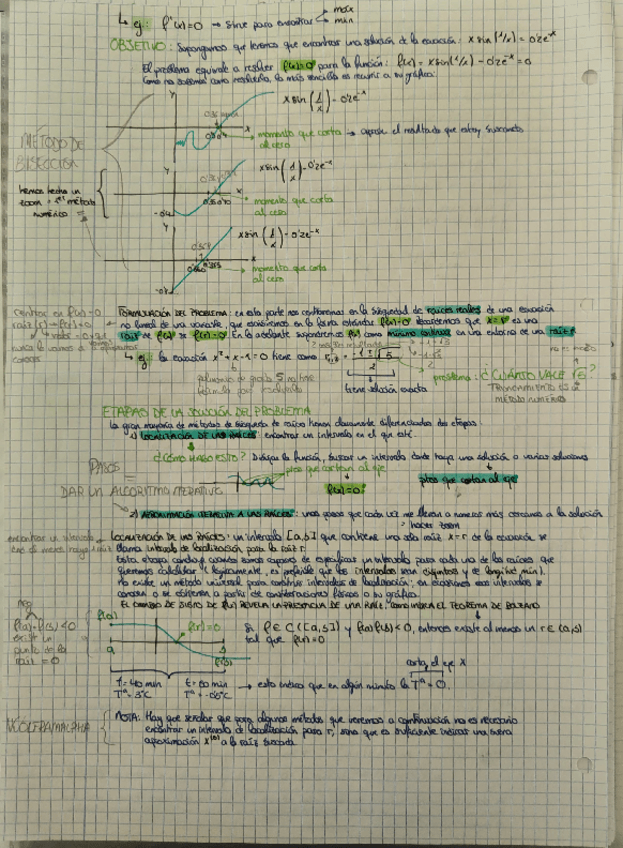 ↳ ej: f'(x)=0 → sirve para encontrar máx
mín
OBJETIVO: Supongamos que tenemos que encontrar una solución de la ecuación: x sin(1/x) = 0'2e^-x
El problema equivale a resolver f(x)=0 para la función: f(x) = x sin(1/x) - 0'2e^-x = 0
como no sabemos como resolverla, lo más sencillo es recurrir a su gráfica:
x sin(1/x) - 0'2e^-x
→ momento que corta → aparece el resultado que estoy buscando
al cero
MÉTODO DE
BISECCIÓN
x sin(1/x) - 0'2e^-x
hemos hecho un
zoom = 1er método
numérico
momento que corta
al cero
x sin(1/x) - 0'2e^-x
momento que corta
al cero
FORMULACIÓN DEL PROBLEMA: en esta parte nos centraremos en la búsqueda de raíces reales de una ecuación
no lineal de una variable, que escribiremos en la forma estándar f(x)=0. Recordemos que x=r es una
raíz de f(x) si f(r)=0. En lo adelante supondremos f(x) como mínimo continua en un entorno de una raíz r
centrar en f(x)=0
↳ ej: la ecuación x²+x-1=0 tiene como
polinomio de grado 5 no tiene
tiene solución exacta
problema: ¿CUÁNTO VALE √5?
MÉTODO NUMÉRICO
ETAPAS DE LA SOLUCIÓN DEL PROBLEMA
La gran mayoría de métodos de búsqueda de raíces tienen claramente diferenciadas dos etapas:
1) LOCALIZACIÓN DE LAS RAÍCES: encontrar un intervalo en el que esté.
¿CÓMO HAGO ESTO? Dibujar la función, buscar un intervalo donde haya una solución o varias soluciones
ptos que cortan al eje
f(x)=0
ptos que cortan al eje
PASOS =
DAR UN ALGORITMO ITERATIVO
2) APROXIMACIÓN ITERATIVA A LAS RAÍCES: unos pasos que cada vez me lleven a números más cercanos a la solución
hacer zoom
encontrar un intervalo
LOCALIZACIÓN DE LAS RAÍCES: un intervalo [a,b] que contiene una sola raíz x=r de la ecuación se
llama intervalo de localización para la raíz r.
Esta etapa concluye cuando somos capaces de especificar un intervalo para cada una de las raíces que
queremos calcular (lógicamente, es preferible que los intervalos sean disjuntos y de longitud mín).
No existe un método universal para construir intervalos de localización; en ocasiones esos intervalos se
conocen o se obtienen a partir de consideraciones físicas o su gráfica.
EL CAMBIO DE SIGNO DE f(x) REVELA LA PRESENCIA DE UNA RAÍZ, COMO INDICA EL TEOREMA DE BOLZANO
f(a)
f(a)·f(b)<0
f(r)=0
Si f∈C([a,b]) y f(a)f(b)<0, entonces existe al menos un r∈(a,b)
tal que f(r)=0
a
b
f(b)
corta el eje x
t=40 min
t=60 min → esto indica que en algún minuto la Tª=0.
WOLFRAMALPHA
NOTA: Hay que señalar que para algunos métodos que veremos a continuación no es necesario
encontrar un intervalo de localización para r, sino que es suficiente indicar una buena
aproximación x^(0) a la raíz buscada.